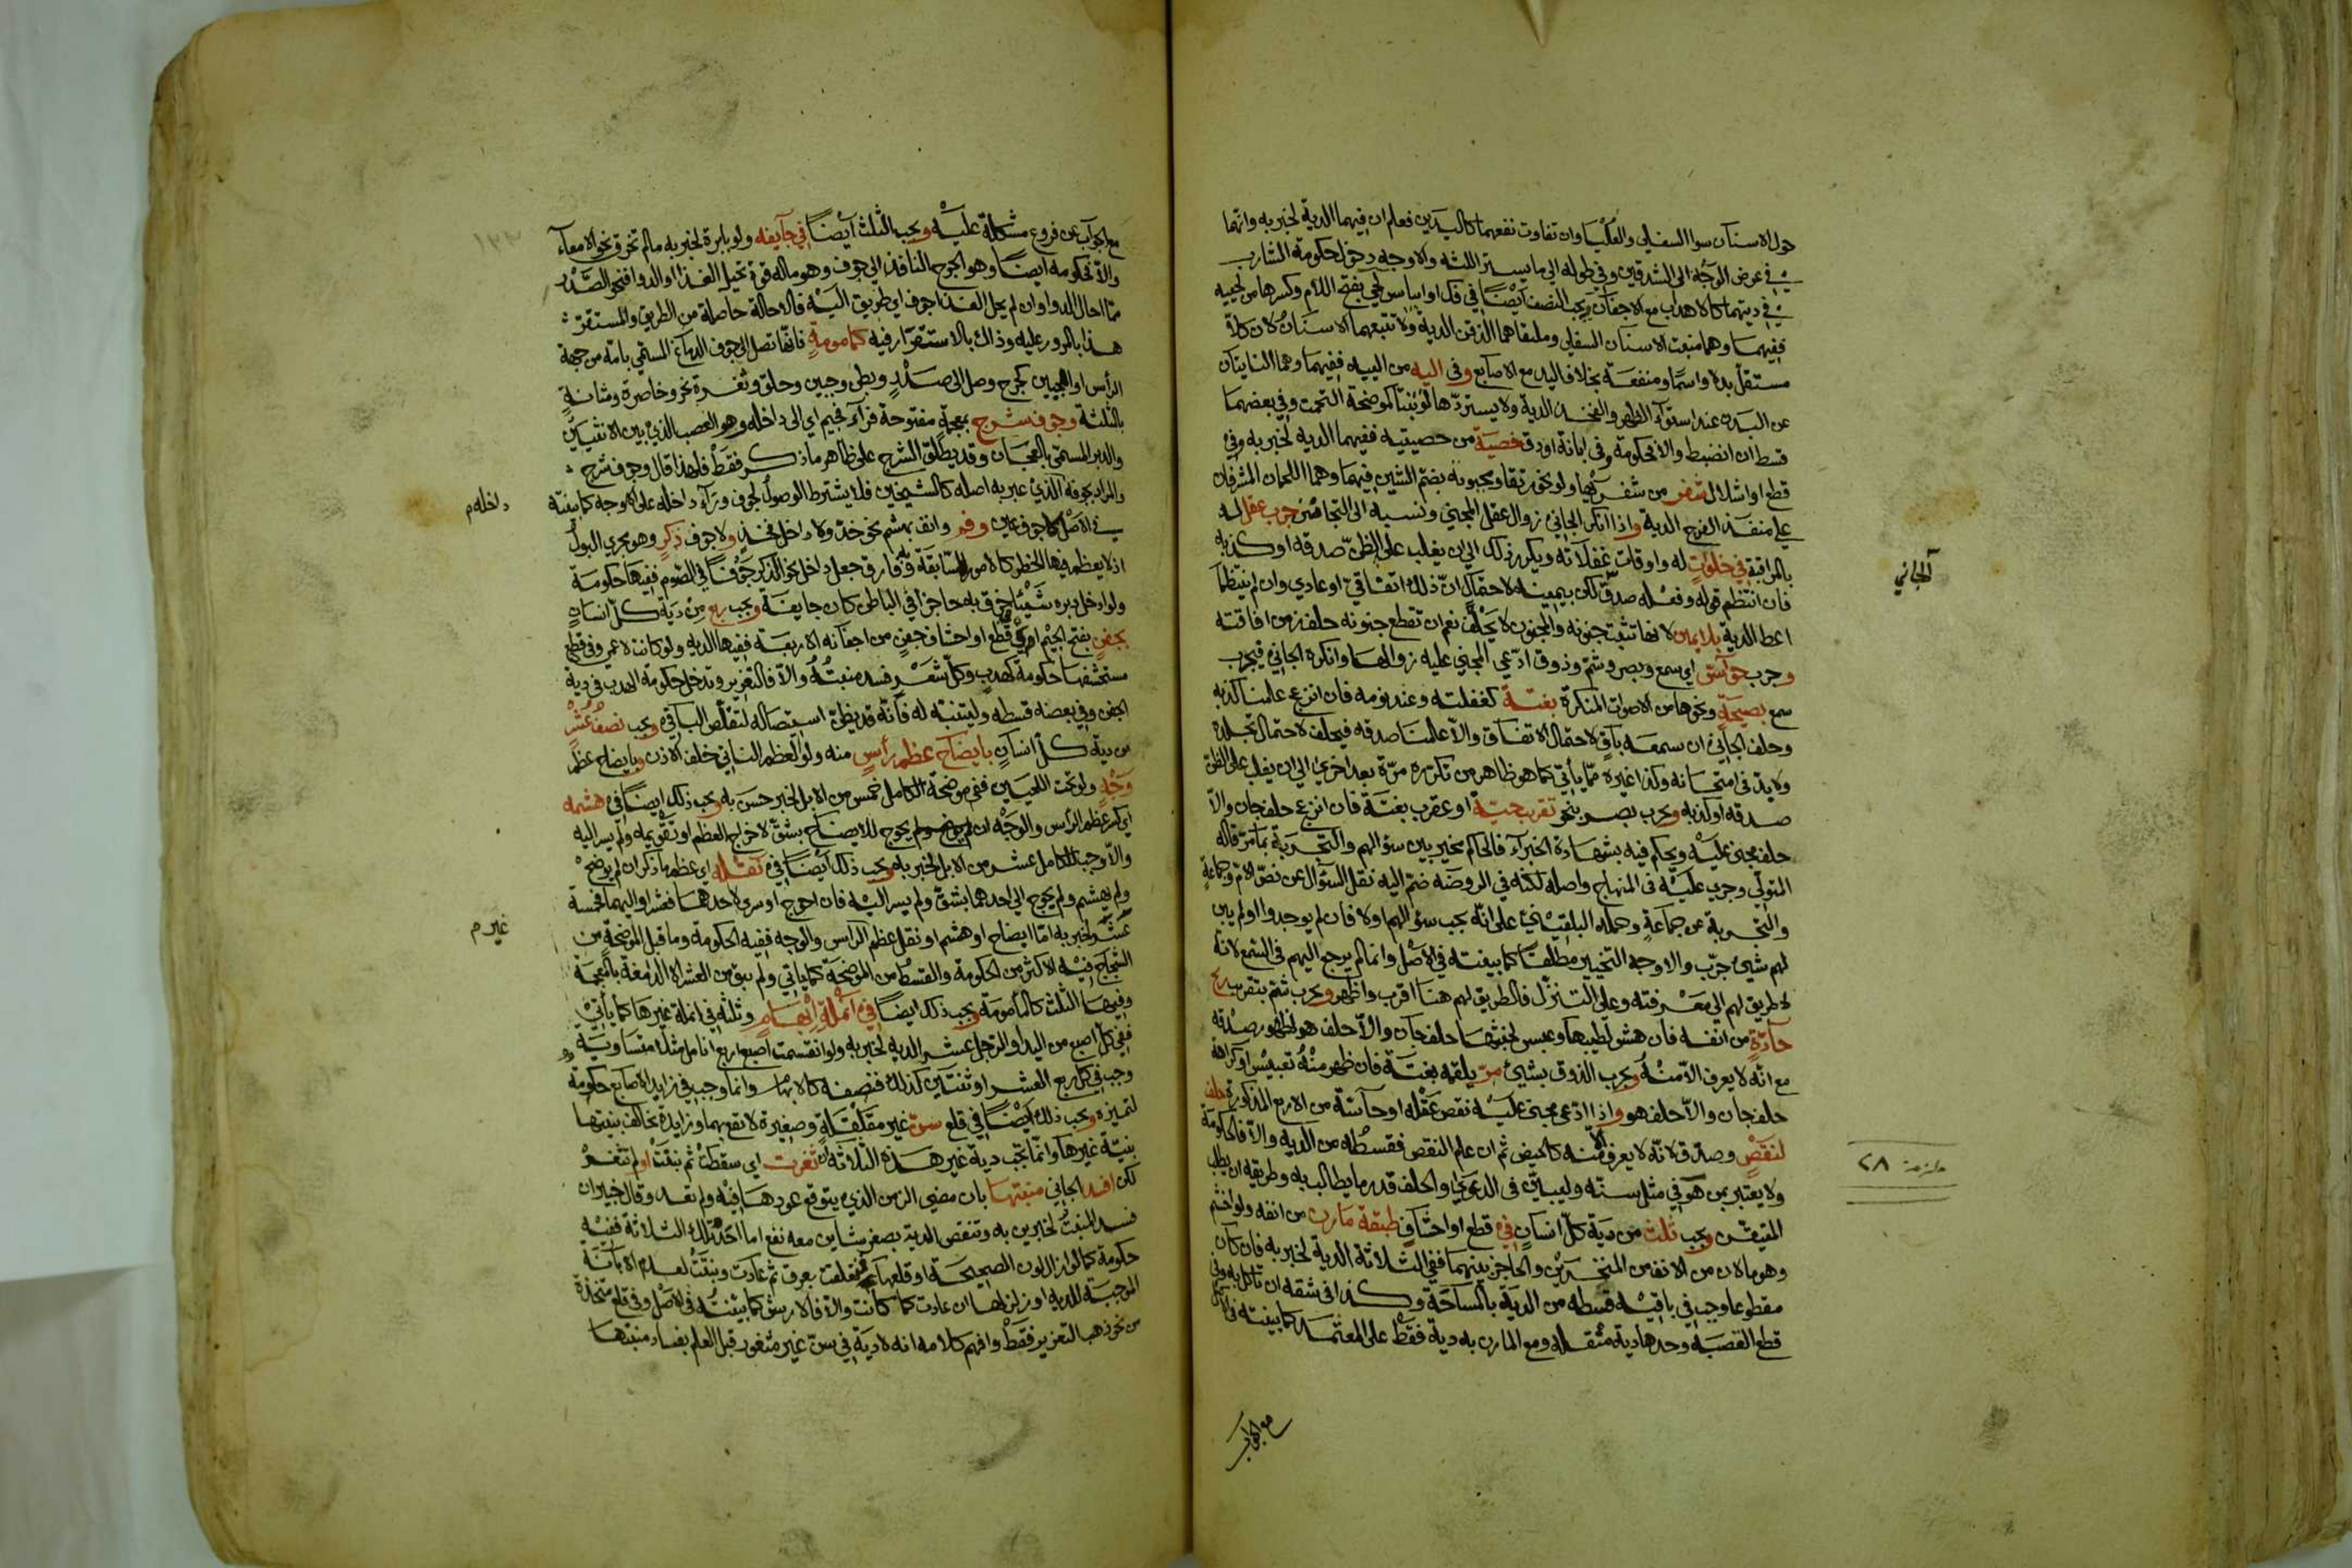 حول الاسنان سوا السفلى والعليا وان تفاوت نفعهما كاليدين فعلم ان فيهما الدية لخبر به وانهما
في عرض الوجه الى الشدقين وفي طوله الى ما يستر اللثه والاوجه دخول حكومة الشارب
في ديتهما كالاهداب مع الاجفان ويجب النصف ايضا في فك او ايباس لحي بفتح اللام وكسرها من لحييه
ففيهما وهما منبت الاسنان السفلى وملتقاهما الذقن الدية ولا تتبعهما الاسنان لان كلا
مستقل بدلا واسما ومنفعة بخلاف اليد مع الاصابع وفي اليه من الييه ففيهما وهما الناتيان
عن البدن عند استواء الظهر والفخذ الدية ولا يستردها لو نبتا كموضحة التحمت وفي بعضهما
قسطه ان انضبط والا فحكومة وفي ابانة او دق خصية من خصيتيه ففيهما الديه لخبر به وفي
قطع او اشلال شفر من شفريها ولو نحو رتقا ومجبوبة بضم الشين ففيهما وهما اللحمان المشرفان
على منفذ الفرج الدية واذا انكر الجاني زوال العقل المجني ونسبه الى التجانن جرب عقل له
بالمراقبة في خلوات له واوقات غفلاته ويكرر ذلك الى ان يغلب على الظن صدقه او كذبه
فان انتظم قوله وفعله صدق لكن بيمينه لاحتمال ان ذلك اتفاقي او عادي وان لم ينتظما
اعطا الدية بلا يمين لانها تثبت جنونه والمجنون لا يحلف نعم ان تقطع جنونه حلف زمن افاقته
وجرب حواس اي سمع وبصر وشم وذوق ادعى المجني عليه زوالها وانكره الجاني فيجرب
سمع بصيحة ونحوها من الاصوات المنكرة بغتة كغفلته وعند نومه فان انزعج علمنا كذبه
وحلف الجاني ان سمعه باق لاحتمال الاتفاق والا علمنا صدقه فيحلف لاحتمال تجلده
ولا بد في امتحانه وكذا غيره مما يأتي كما هو ظاهر من تكرره مرة بعد اخرى الى ان يغلب على الظن
صدقه او كذبه ويجرب بصر بنحو تقريب حية او عقرب بغتة فان انزعج حلف جان والا
حلف مجنى عليه ويحكم فيه بشهادة الخبراء فالحاكم مخير بين سؤالهم والتجربة بما مر قاله
المتولي وجرى عليه في المنهاج واصله لكنه في الروضه ضم اليه نقل السؤال عن نص الام وجماعة
والتجربة عن جماعة وحمله البلقيني على انه يجب سؤالهم اولا فان لم يوجدوا او لم يبن
لهم شيئ جرب والاوجه التخيير مطلقا كما بينته في الاصل وانما لم يرجع اليهم في السمع لانه
لا طريق لهم الى معرفته وعلى التنزل فالطريق لهم هنا اقرب واظهر ويجرب شم بتقريب ريح
حادة من انفه فان هش لطيبها وعبس لخبيثها حلف جان والا حلف هو لظهور صدقه
مع انه لا يعرف الا منه ويجرب الذوق بشيئ مر يلقمه بغتة فان ظهر منه تعبيس او كراهة
حلف جان والا حلف هو واذا ادعى مجنى عليه نقص عقله او حاسة من الاربع المذكورة حلف
لنقص وصدق لانه لا يعرف الا منه كالحيض ثم ان علم النقص فقسطه من الديه والا فالحكومة
ولا يعتبر بمن هو في مثل سنه وليبين في الدعوى والحلف قدر ما يطالب به وطريقه ان يطلب
المتيقن ويجب ثلث من دية كل انسان في قطع او احشاف طبقة مارن من انفه ولو اخشم
وهو مالان من الانف من المنخرين والحاجز بينهما ففي الثلاثة الدية لخبر به فان كان
مقطوعا وجب في باقيه قسطه من الدية بالمساحة وكذا في شقه ان تاكل به وفي
قطع القصبة وحدها دية منقله ومع المارن به دية فقط على المعتمد كما بينته في الاصل
مع الجواب
الجاني
ملزمة ٢٨
١٣٢
مع الجواب عن فروع مشكلة عليه ويجب الثلث ايضا في جايفه ولو بابرة لخبر به مالم تخرق نحو الامعاء
والا فحكومه ايضا وهو الجرح النافذ الى جوف وهو ما له قوة تحيل الغذا او الدوا فنحو الصدر
مما احال الدوا وان لم يحل الغذا جوف اي طريق اليه فالاحالة حاصلة من الطريق والمستقر
هذا بالمرور عليه وذاك بالاستقرار فيه كمامومة فانها تصل الى جوف الدماغ المسمى بامه من جهة
الرأس او الجبين كجرح وصل الى صدر وبطن وجبين وحلق وثغرة نحر وخاصرة ومثانة
بالمثلثة وجوف شرج بمعجمة مفتوحة فراء فجيم اي الى داخله وهو العصب الذي بين الانثيين
والدبر المسمى بالعجان وقد يطلق الشرج على ظاهر ما ذكر فقط فلهذا قال وجوف شرج
والمراد بجوفه الذي عبر به اصله كالشيخين فلا يشترط الوصول لجوف وراء داخله على الاوجه كما بينته
في الاصل لا جوف عين وفم وانف بهشم نحو خد ولا داخل فخذ ولا جوف ذكر وهو مجرى البول
اذ لا يعظم فيها الخطر كالامور السابقة وبه فارق جعل داخل نحو الذكر جوفا في الصوم ففيها حكومة
ولو ادخل دبره شيئا خرق به حاجزا في الباطن كان جايفة ويجب ربع من دية كل انسان
بجفن بفتح الجيم اي في قطع او احشاف جفن من اجفانه الاربعة ففيها الديه ولو كانت لاعمى وفي قطع
مستحشفها حكومة كهدب وكل شعر فسد منبته والا فالتعزير وتدخل حكومة الهدب في دية
الجفن وفي بعضه قسطه وليتنبه له فانه قد يظن استيصاله لتقلص الباقي ويجب نصف عشر
من دية كل انسان بايضاح عظم رأس منه ولو العظم الناتي خلف الاذن وبايضاح عظم
وجه ولو تحت اللحيين ففي موضحة الكامل خمس من الابل لخبر حسن به ويجب ذلك ايضا في هشمه
اي كسر عظم الرأس والوجه ان لم يوضح ولم يحوج للايضاح بشق لاخراج العظم او تقويمه ولم يسر اليه
والا وجب للكامل عشر من الابل لخبر به ويجب ذلك ايضا في نقله اي عظم ما ذكر ان لم يوضح
ولم يهشم ولم يحوج الى احدهما بشق ولم يسر اليه فان احوج او سرى لاحدهما فعشر او اليهما فخمسة
عشر لخبر به اما ايضاح او هشم او نقل عظم الراس والوجه ففيه الحكومة وما قبل الموضحة من
الشجاج فيه الاكثر من الحكومة والقسط من الموضحة كما ياتي ولم يبق من العشر الا الدامغة بالمعجمة
وفيها الثلث كالمأمومة ويجب ذلك ايضا في انملة ابهام وثلثه في انملة غيرها كما يأتي
ففي كل اصبع من اليد او الرجل عشر الديه لخبر به ولو انقسمت اصبع اربع انامل مثلا متساويه
وجب في كل ربع العشر او ثنتين كذلك فنصفه كالابهام وانما وجب في زايد الاصابع حكومة
لتميزه ويجب ذلك ايضا في قلع سن غير مقلقلة وصغيرة لا نفع بهما وزايدة تخالف بنيتها
بنية غيرها وانما تجب دية غير هذه الثلاثة ان ثغرت اي سقطت ثم نبتت او لم تثغر
لكن افسد الجاني منبتها بان مضى الزمن الذي يتوقع عودها فيه ولم تعد وقال خبيران
فسد المنبت لخبرين به وتنقص الدية بصغر شاين معه نفع اما احد تلك الثلاثة ففيه
حكومة كما لو ازال لون الصحيحة او قلعها فتعلقت بعرق ثم عادت ونبتت لعدم الابانة
الموجبة للديه او زلزلها ان عادت كما كانت والا فالارش كما بينته في الاصل وفي قلع متخذة
من نحو ذهب التعزير فقط وافهم كلامه انه لا دية في سن غير مثغور قبل العلم بفساد منبتها
داخله م
غير م